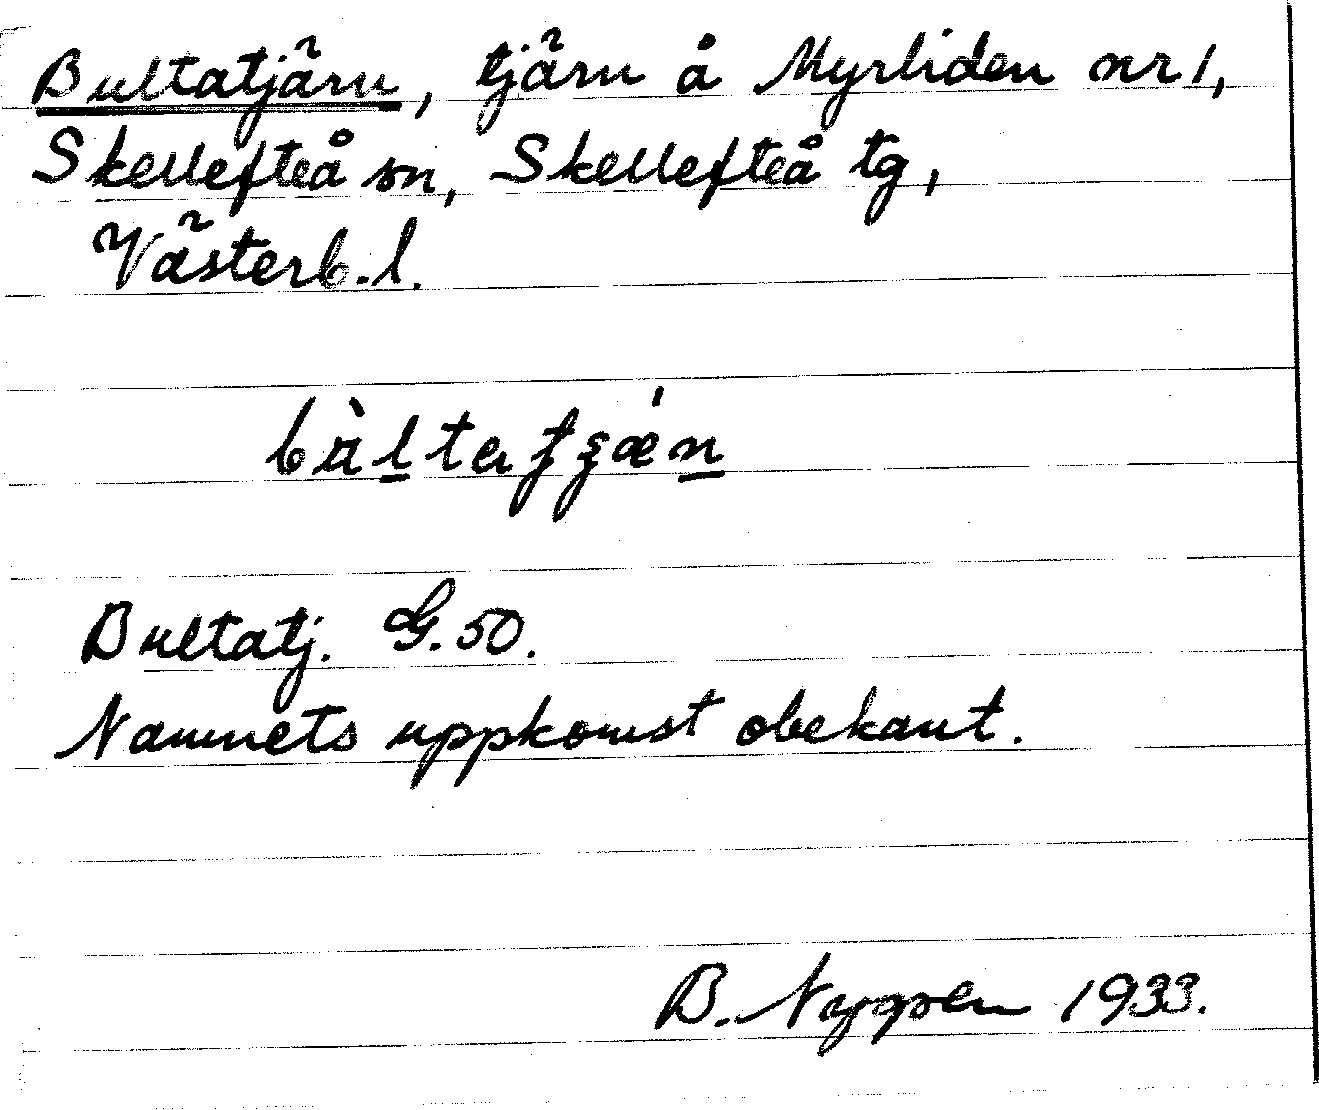 Bultatjärn, tjärn å Myrliden nr 1,
Skellefteå sn, Skellefteå tg,
Västerb. l.
Bultatj. G. 50.
Namnets uppkomst obekant.
B. Nygren 1933.